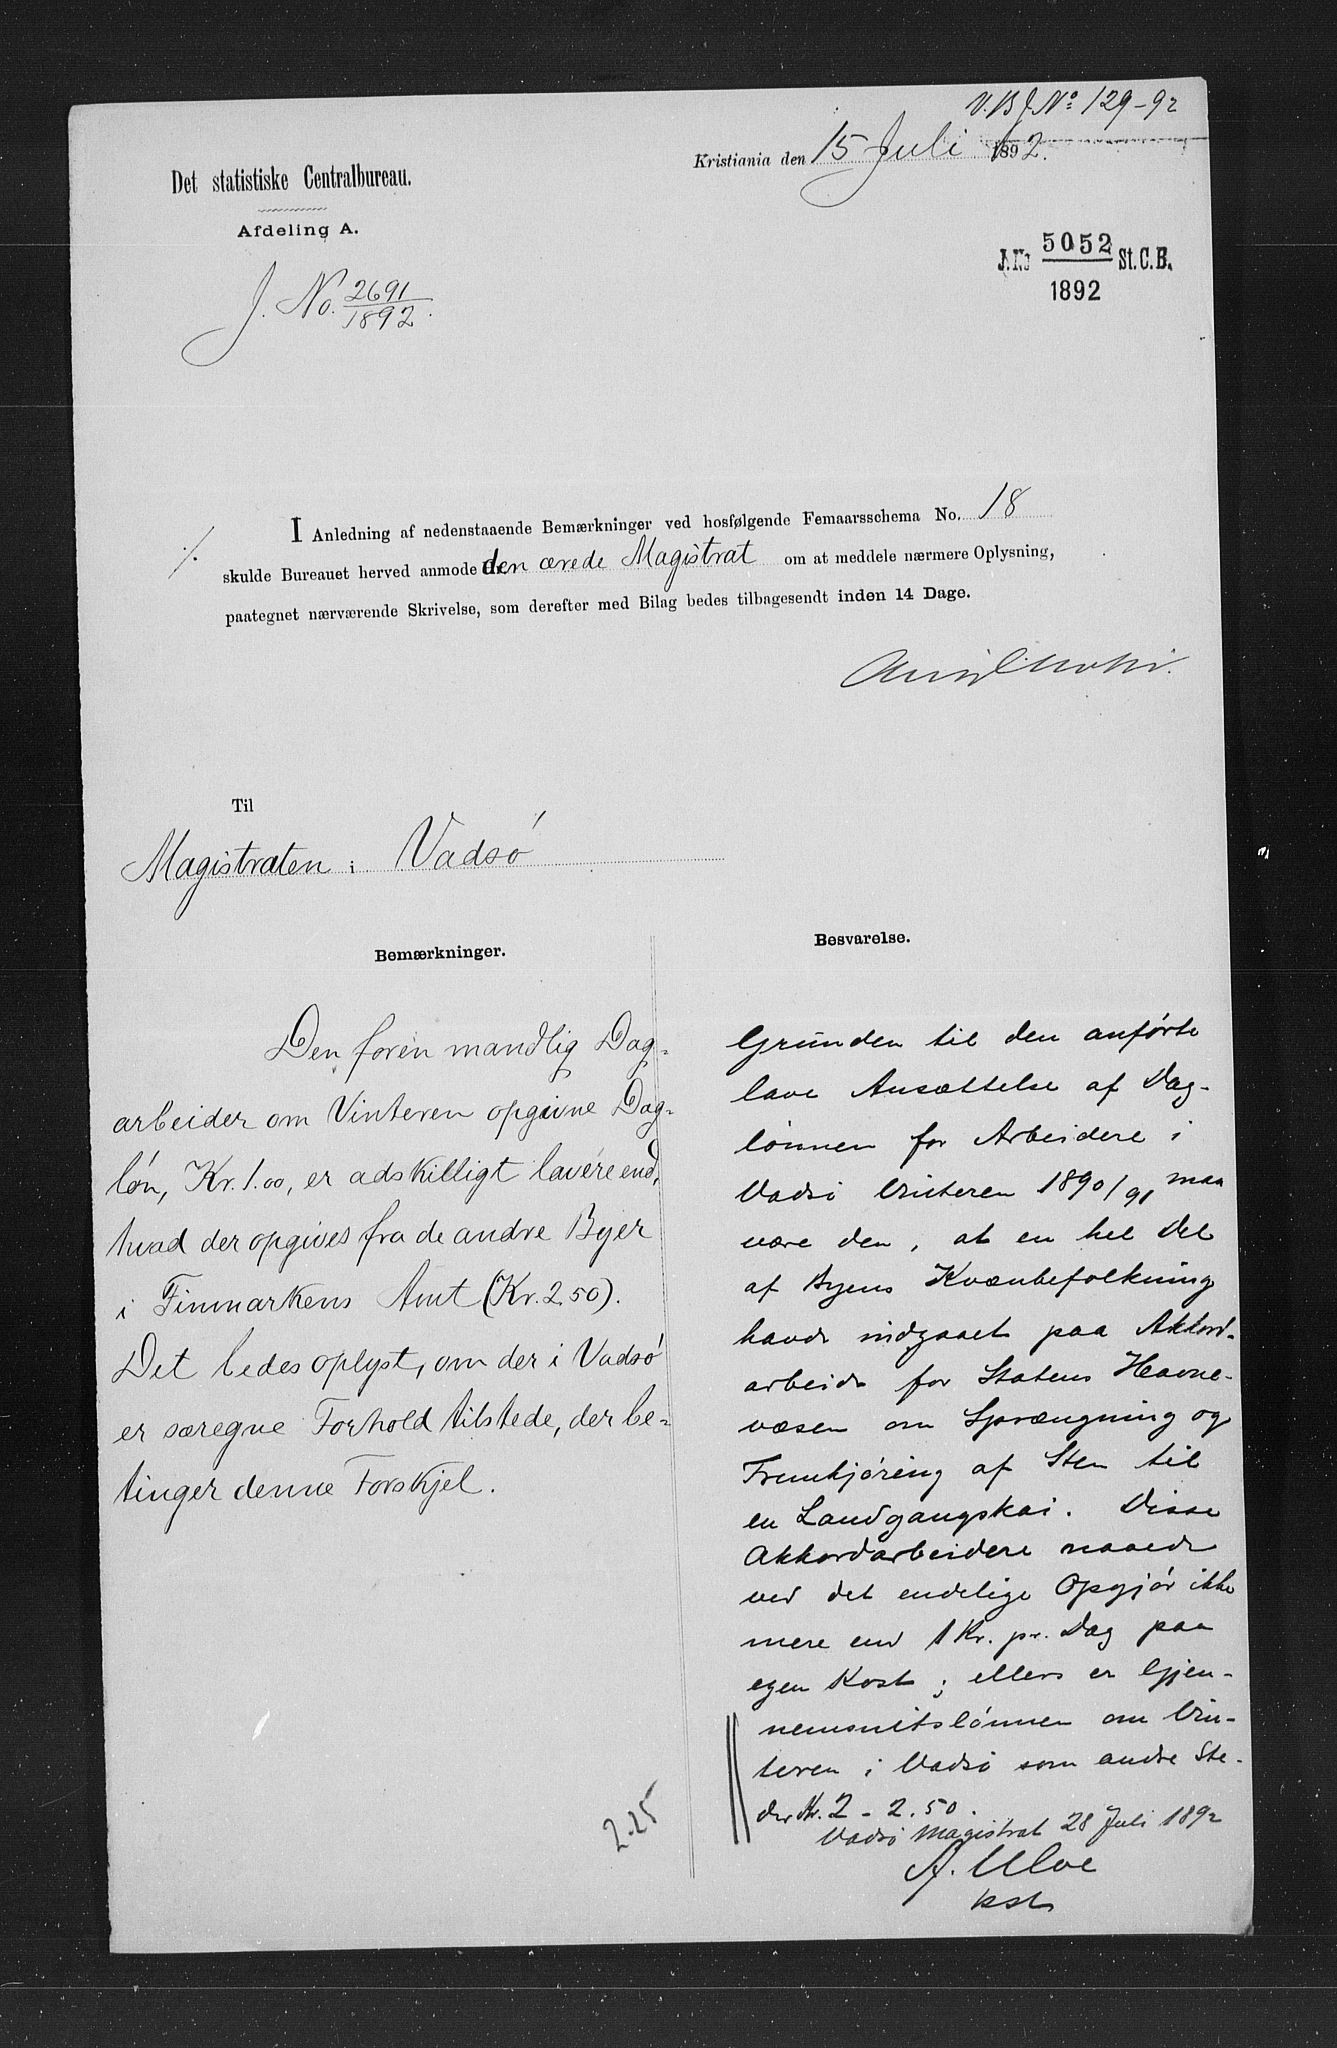 V.B J.No 129-92
Det statistiske Centralbureau.
Afdeling A.
J. No. 2691
1892.
Kristiania den 15 Juli 1892.
J.No 5052 St.C.B.
1892
I Anledning af nedenstaaende Bemærkninger ved hosfølgende Femaarsschema No. 18
./. skulde Bureauet herved anmode den ærede Magistrat om at meddele nærmere Oplysning,
paategnet nærværende Skrivelse, som derefter med Bilag bedes tilbagesendt inden 14 Dage.
Til
Magistraten i Vadsö
Bemærkninger.
Den for en mandlig Dag-
arbeider om Vinteren opgivne Dag-
løn, Kr. 1.00, er adskilligt lavere end,
hvad der opgives fra de andre Byer
i Finmarkens Amt (Kr. 2.50).
Det bedes oplyst, om der i Vadsö
er særegne Forhold tilstede, der be-
tinger denne Forskjel.
Besvarelse.
Grunden til den anførte
lave Ansættelse af Dag-
lønnen for Arbeidere i
Vadsö Vinteren 1890/91 maa
være den, at en hel Del
af Byens Kvænbefolkning
havde indgaaet paa Akkord-
arbeide for Statens Havne-
væsen om Sprængning og
Fremkjøring af Sten til
en Landgangskai. Disse
Akkordarbeidere naaede
ved det endelige Opgjør ikke
mere end 1 Kr. pr. Dag paa
egen Kost; ellers er Gjen-
nemsnitslønnen om Vin-
teren i Vadsö som andre Ste-
der Kr. 2 - 2.50.
Vadsö Magistrat 28 Juli 1892
A. Ulve
kst
2.25